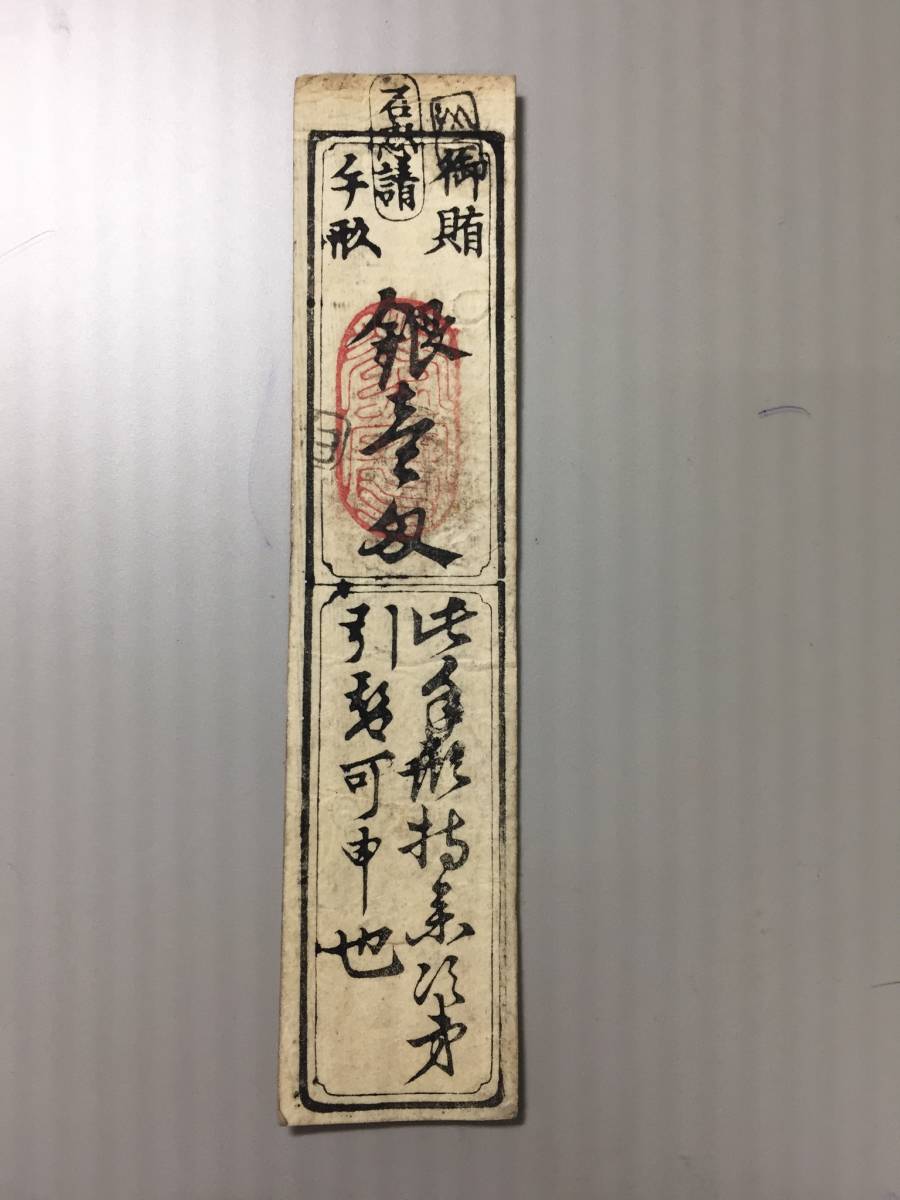 御賄
手形
銀壱匁
此手形持参次第
引替可申也